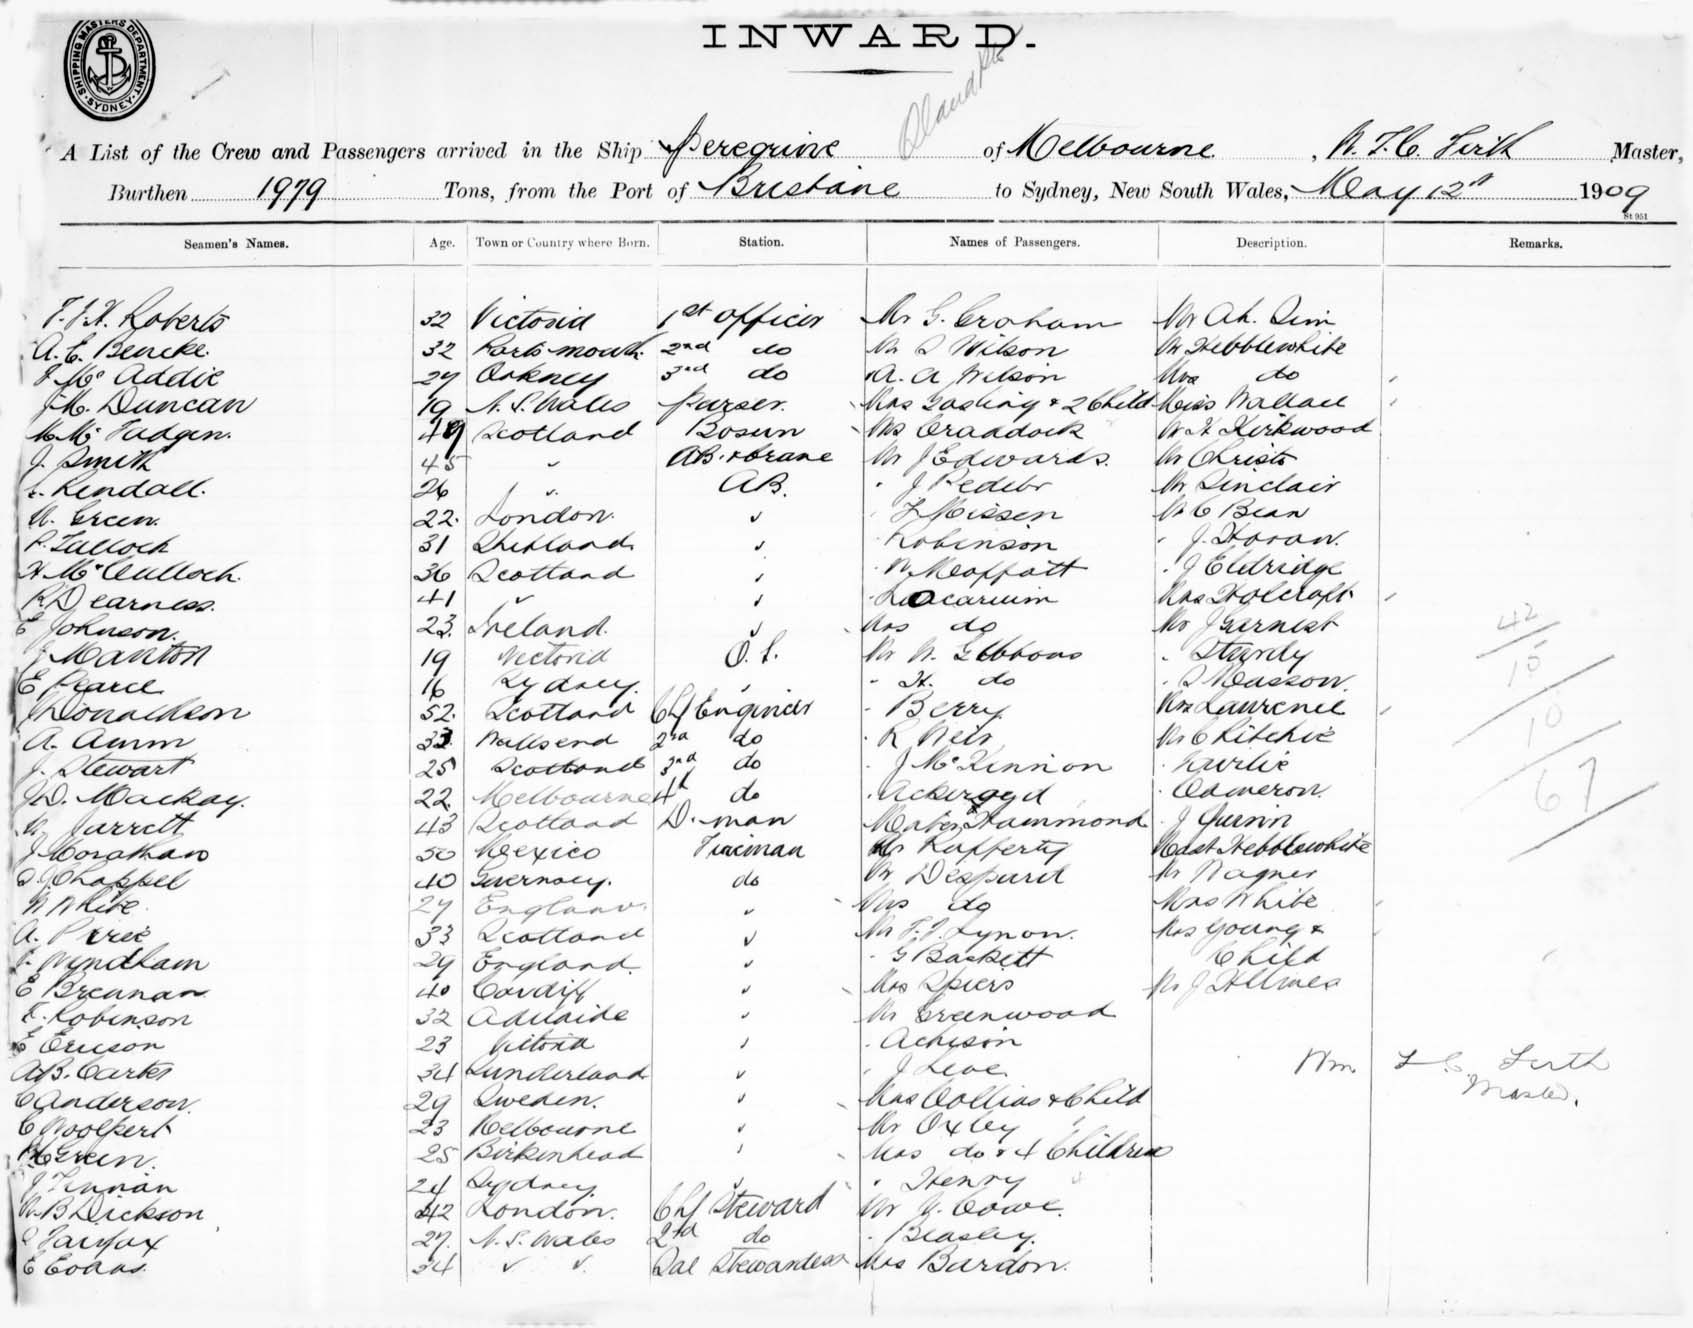 SHIPPING MASTERS DEPARTMENT. SYDNEY
INWARD.
A List of the Crew and Passengers arrived in the Ship Peregrine of Melbourne, W. F. C. Firth Master,
Burthen 1979 Tons, from the Port of Brisbane to Sydney, New South Wales, May 12th 1909
St 951
Seamen's Names. Age. Town or Country where Born. Station. Names of Passengers. Description. Remarks.
Roberts 32 Victoria 1st officer Mr G. Graham Mr Ah. Sim
A. C. Bencke. 32 Portsmouth. 2nd do Mr S Wilson Mr Hebblewhite
McAddie 27 Orkney 3rd do A. A Wilson Mrs do
J. M. Duncan 19 N. S. Wales Purser. Mrs Gosling & 2 Child Miss Wallace
49 Scotland Bosun Mrs Craddock Mr H Kirkwood
J. Smith 45 " AB. & Crane Mr J Edwards. Mr Christo
Kendall. 26 " AB. " J Mr Sinclair
W. Green. 22. London. " " F Missen Mr C Bean
P. Tulloch 31 Shetland " " Robinson " J. Horan.
H. McCulloch. 36 Scotland " " W Moffatt " J Eldridge
R Dearness. 41 " " Mrs Holcroft
E Johnson. 23. Ireland. " Mrs do Mr J Earnest
J Manton 19 Victoria O. S. Mr W. Gibbons " Sturdy
E Pearce 16 Sydney. " " H. do " S Masson.
J Donaldson 52. Scotland Chf Engineer " Berry Mrs Laurence
A. Aunm 33 Wallsend 2nd do " R Weir Mr C Ritchie
J. Stewart 25 Scotland 3rd do " J McKinnon
J. D. Mackay. 22. Melbourne 4th do " Ackeroyd " Cameron.
Jarrett 43 Scotland D. man Hammond " J Quinn
50 Mexico Fireman Mr Rafferty Mast Hebblewhite
Chappel 40 Guernsey. do Mr Despard Mr Wagner
W White 27 England. " Mrs do Mrs White
A. Pirie 33 Scotland " Mr F. J. Lynon. Mrs Young &
Wyndham 29 England. " " G Baskett Child
E Brennan 40 Cardiff " Mrs Spiers Mr J Holmes
E. Robinson 32 Adelaide " Mr Greenwood
E Ericson 23 Victoria " " Acheson
A. B. Carter 34 Sunderland " " J
C Anderson. 29 Sweden. " Mrs Collins & Child
C Woolpert 23 Melbourne " Mr Oxley
Green. 25 Birkenhead " Mrs do & 4 Children
J Tennian 24 Sydney. " " Henry
W. B Dickson 42 London. Chf Steward Mr J. Cowe.
Fairfax 27. N. S. Wales 2nd do " Beasley.
E Evans. 34 " " Sal Stewardess Mrs Burdon.
42
15
10
67
Wm. F. C. Firth
Master.